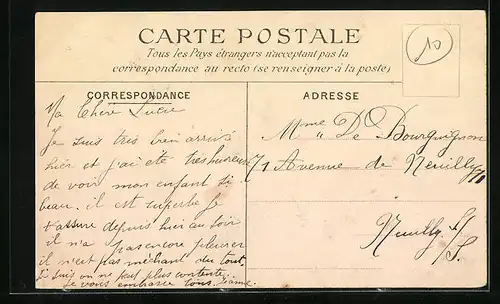 CARTE POSTALE
Tous les Pays étrangers n'acceptant pas la
correspondance au recto (se renseigner à la poste)
10
CORRESPONDANCE
Ma Chère Lucie
Je suis très bien arrivé
hier et j'ai été très heureuse
de voir mon enfant si
beau. il est superbe je
t'assure depuis hier au soir
il n'a pas encore pleurer
il n'est pas méchant du tout
je suis on ne peut plus contente.
Je vous embrasse tous.
ADRESSE
Mme De Bourguignon
71 Avenue de Neuilly
Neuilly s/
S.